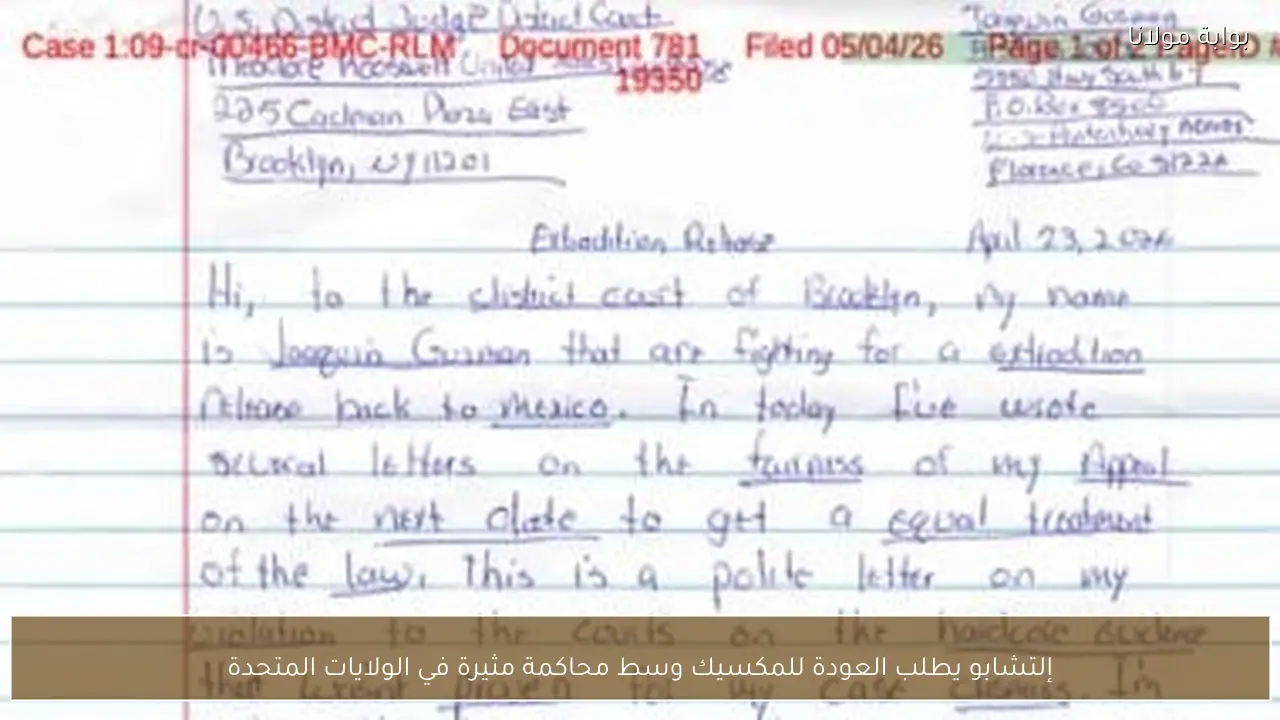 بوابة مولانا
U.S. District Judge District Court
Joaquin Guzman
Case 1:09-cr-00466-BMC-RLM Document 781 Filed 05/04/26 Page 1 of
19350
Theodore Roosevelt United
225 Cadman Plaza East
P.O. Box 8500
Brooklyn, NY 11201
Florence, Co 81226
Extradition Release April 23, 2026
Hi, to the district court of Brooklyn, my name
is Joaquin Guzman that are fighting for a extradition
release back to mexico. In today I've wrote
several letters on the fairness of my Appeal
on the next date to get a equal treatment
of the law. This is a polite letter on my
violation to the courts on the hardcore evidence
إلتشابو يطلب العودة للمكسيك وسط محاكمة مثيرة في الولايات المتحدة
proven for my case I'm